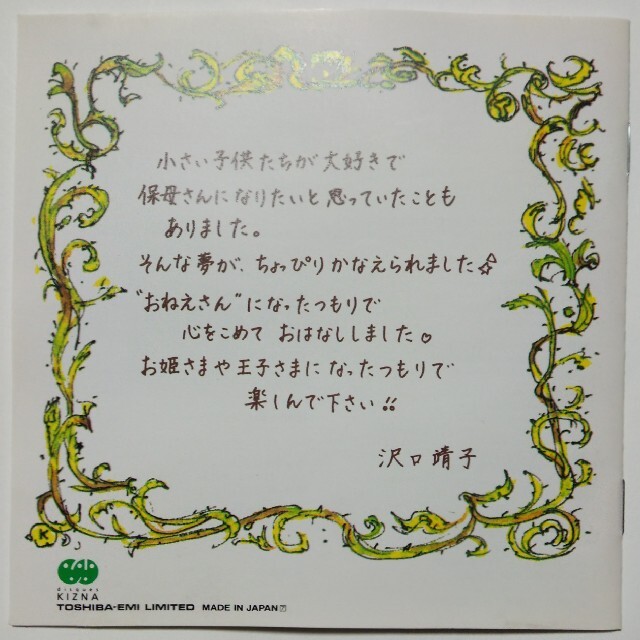 小さい子供たちが大好きで
保母さんになりたいと思っていたことも
ありました。
そんな夢が、ちょっぴりかなえられました☆
"おねえさん"になったつもりで
心をこめて おはなししました。
お姫さまや王子さまになったつもりで
楽しんで下さい!!
沢口靖子
K
disques
KIZNA
TOSHIBA-EMI LIMITED MADE IN JAPAN